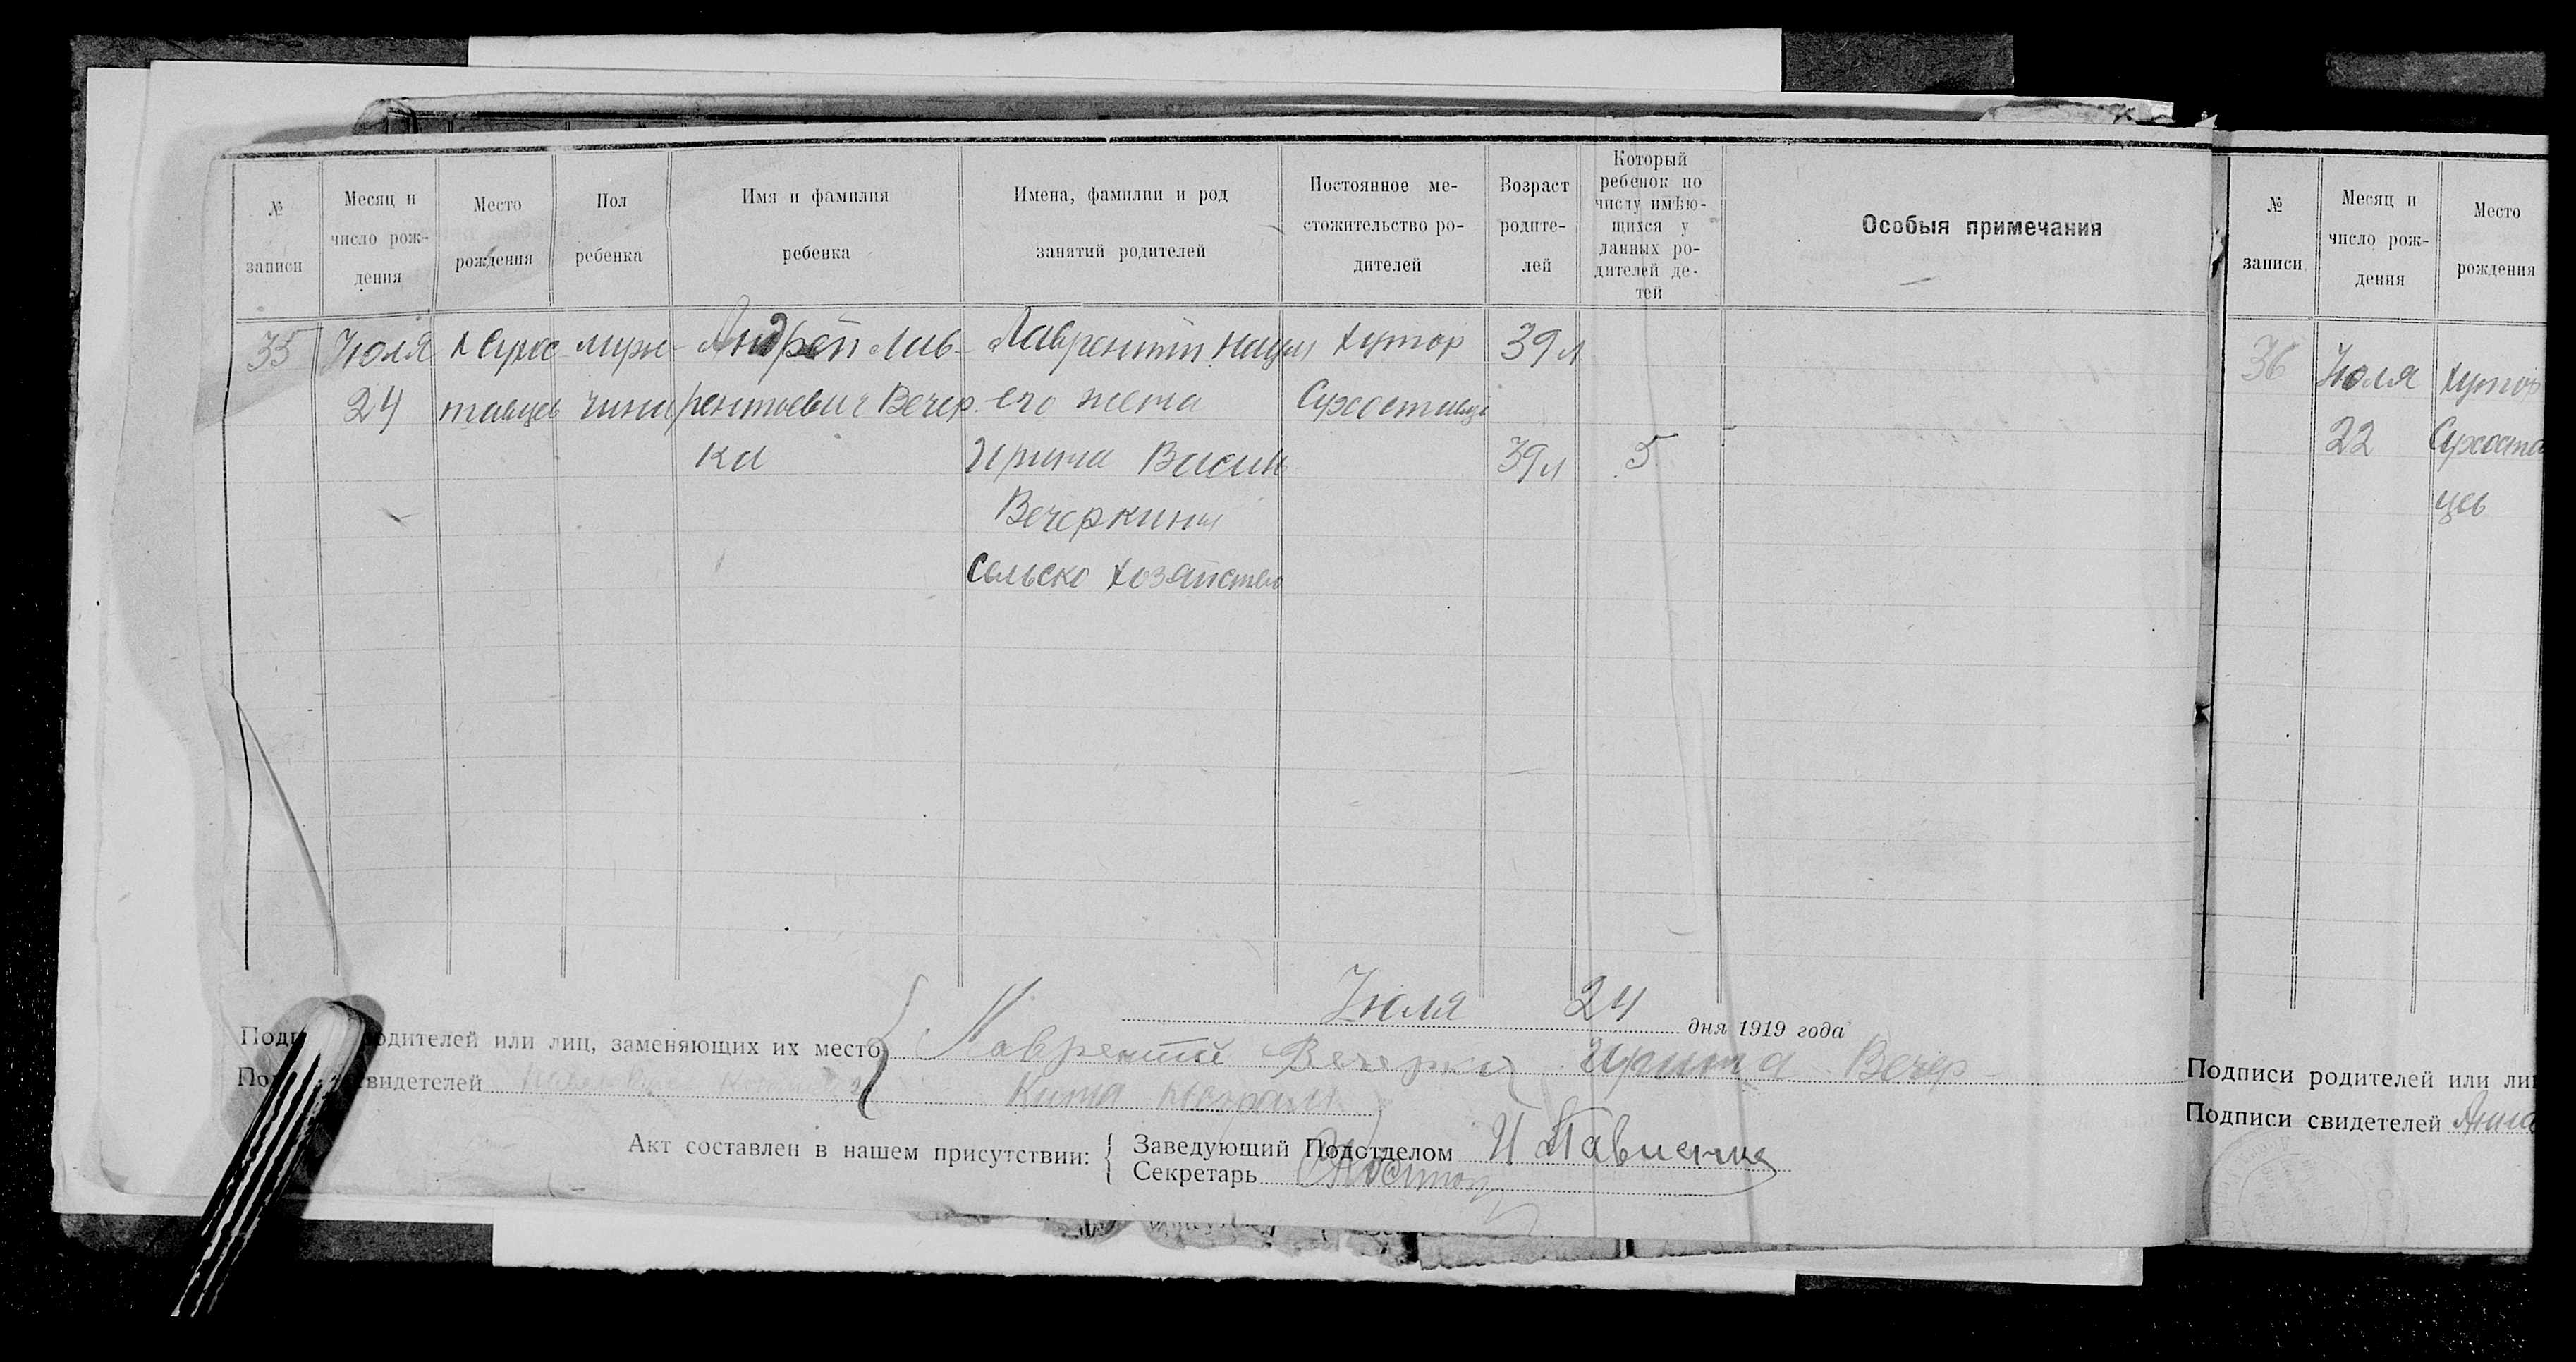 № записи
Месяц и число рождения
Место рождения
Пол ребенка
Имя и фамилия ребенка
Имена, фамилии и род занятий родителей
Постоянное местожительство родителей
Возраст родителей
Который ребенок по числу имѣющихся у данных родителей детей
Особыя примечания
35 Июля х Сухос мужс Андрей Лав- Лаврентий Хутор 39 л
24 тавцев чина рентьевич Вечер его жена Сухоставц
ка Ирина Васил 39 л 5
Вечеркины
Сельско хозяйством
Июля 24 дня 1919 года
родителей или лиц, заменяющих их место Лаврентий Вечерка Ирина Вечер
свидетелей
Акт составлен в нашем присутствии:
Заведующий Подотделом И Павленко
Секретарь
№ записи
Месяц и число рождения
Место рождения
36 Июля хутор
22 Сухоста
цев
Подписи родителей или
Подписи свидетелей